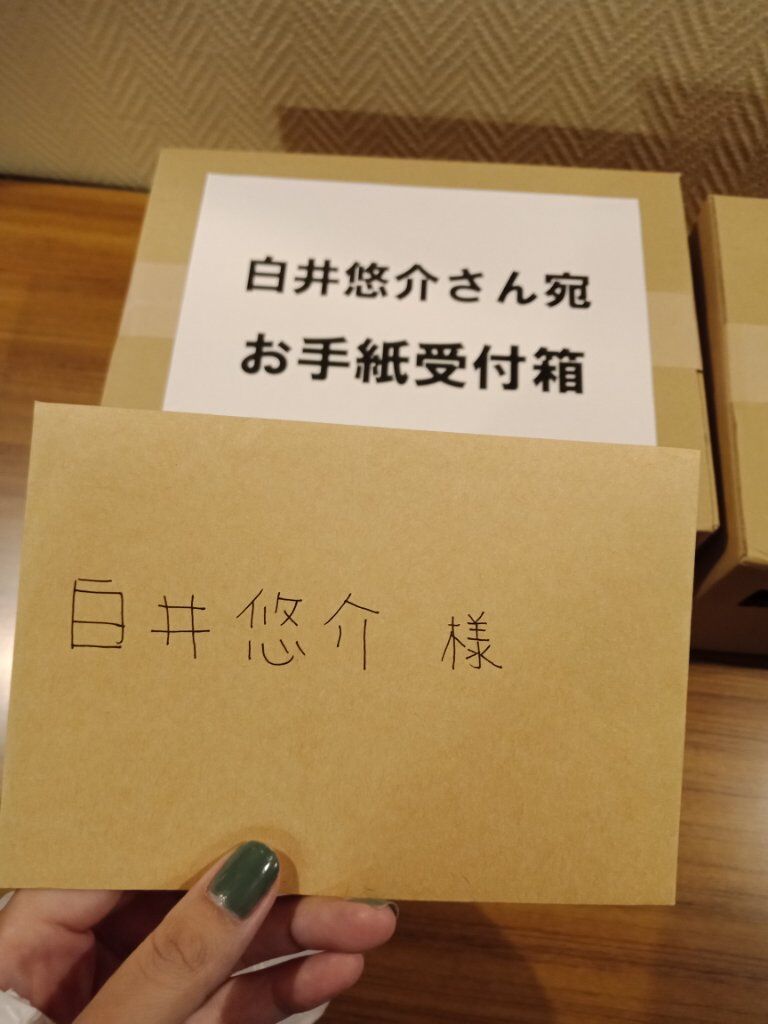 白井悠介さん宛
お手紙受付箱
白井悠介 様